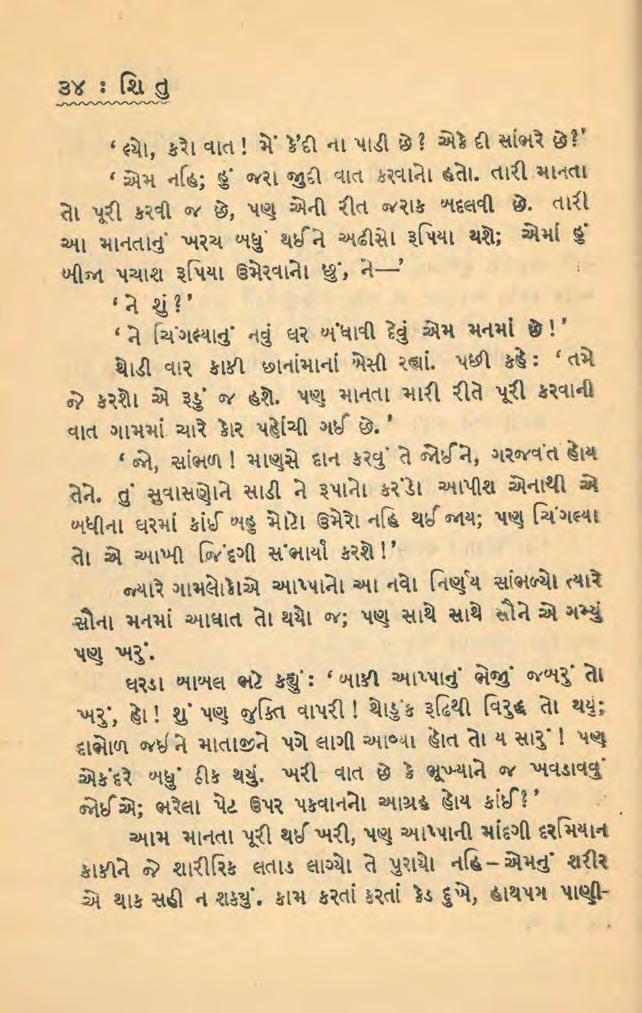 ૩૪ : શિતુ
‘ લ્યો, કરો વાત ! મેં કે’દી ના પાડી છે ? એકે દી સાંભરે છે ?’
‘ એમ નહિ; હું જરા જુદી વાત કરવાનો હતો. તારી માનતા
તો પૂરી કરવી જ છે, પણ એની રીત જરાક બદલવી છે. તારી
આ માનતાનું ખરચ બધું થઈને અઢીસો રૂપિયા થશે; એમાં હું
બીજા પચાશ રૂપિયા ઉમેરવાનો છું, ને—’
‘ ને શું ?’
‘ ને ચિંગલ્યાનું નવું ઘર બંધાવી દેવું એમ મનમાં છે !’
થોડી વાર કાકી છાનાંમાનાં બેસી રહ્યાં. પછી કહે : ‘ તમે
જે કરશો એ રૂડું જ હશે. પણ માનતા મારી રીતે પૂરી કરવાની
વાત ગામમાં ચારે કોર પહોંચી ગઈ છે. ’
‘ જો, સાંભળ ! માણસે દાન કરવું તે જોઈને, ગરજવંત હોય
તેને. તું સુવાસણોને સાડી ને રૂપાનો કરંડો આપીશ એનાથી એ
બધીના ઘરમાં કાંઈ બહુ મોટો ઉમેરો નહિ થઈ જાય; પણ ચિંગલ્યા
તો એ આખી જિંદગી સંભાર્યા કરશે !’
જ્યારે ગામલોકોએ આપ્પાનો આ નવો નિર્ણય સાંભળ્યો ત્યારે
સૌના મનમાં આઘાત તો થયો જ; પણ સાથે સાથે સૌને એ ગમ્યું
પણ ખરું.
ઘરડા બાબલ ભટે કહ્યું : ‘ બાકી આપ્પાનું ભેજું જબરું તો
ખરું, હો ! શું પણ જુક્તિ વાપરી ! થોડુંક રૂઢિથી વિરુદ્ધ તો થયું;
દાભોળ જઈને માતાજીને પગે લાગી આવ્યા હોત તો ય સારું ! પણ
એકંદરે બધું ઠીક થયું. ખરી વાત છે કે ભૂખ્યાને જ ખવડાવવું
જોઈએ; ભરેલા પેટ ઉપર પકવાનનો આગ્રહ હોય કાંઈ ?’
આમ માનતા પૂરી થઈ ખરી, પણ આપ્પાની માંદગી દરમિયાન
કાકીને જે શારીરિક લતાડ લાગ્યો તે પુરાયો નહિ – એમનું શરીર
એ થાક સહી ન શક્યું. કામ કરતાં કરતાં કેડ દુખે, હાથપગ પાણી-